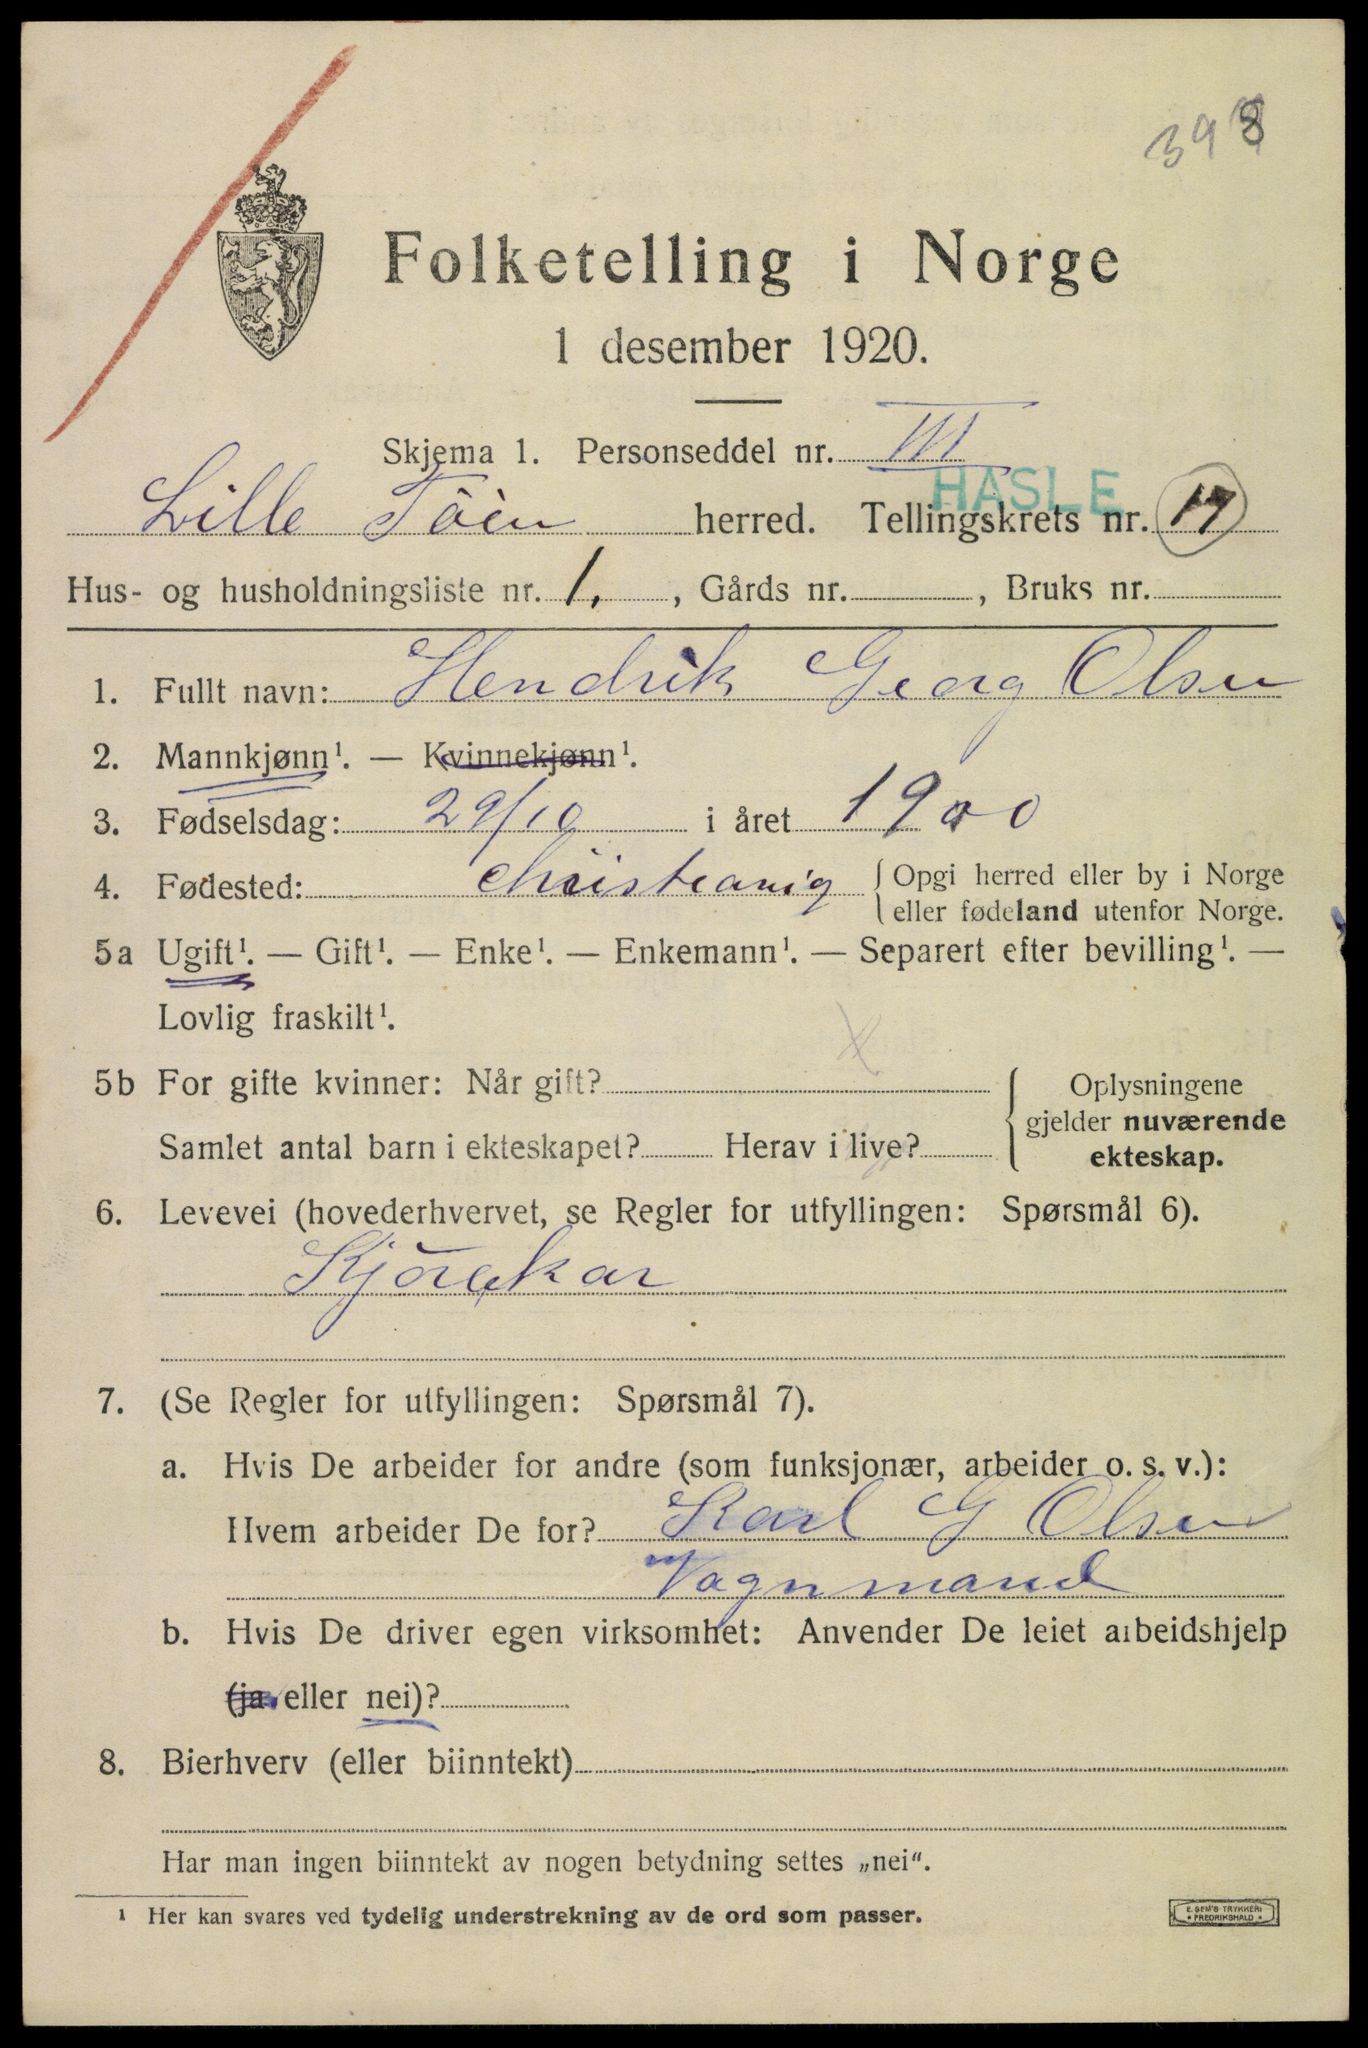 398
Folketelling i Norge
1 desember 1920.
Skjema 1. Personseddel nr. III
HASLE
Lille Töien herred. Tellingskrets nr. 17
Hus- og husholdningsliste nr. 1. , Gårds nr. , Bruks nr.
1. Fullt navn: Hendrik Georg Olsen
2. Mannkjønn¹. — Kvinnekjønn¹.
3. Fødselsdag: 29/10 i året 1900
4. Fødested: Christiania { Opgi herred eller by i Norge
eller fødeland utenfor Norge.
5a Ugift¹. — Gift¹. — Enke¹. — Enkemann¹. — Separert efter bevilling¹. —
Lovlig fraskilt¹.
5b For gifte kvinner: Når gift? Oplysningene
gjelder nuværende
Samlet antal barn i ekteskapet? Herav i live? ekteskap.
6. Levevei (hovederhvervet, se Regler for utfyllingen: Spørsmål 6).
Kjörekar
7. (Se Regler for utfyllingen: Spørsmål 7).
a. Hvis De arbeider for andre (som funksjonær, arbeider o. s. v.):
Hvem arbeider De for? Karl G Olsen
Vognmand
b. Hvis De driver egen virksomhet: Anvender De leiet arbeidshjelp
(ja eller nei)?
8. Bierhverv (eller biinntekt)
Har man ingen biinntekt av nogen betydning settes „nei“.
¹ Her kan svares ved tydelig understrekning av de ord som passer.
E. SEM'S TRYKKERI
• FREDRIKSHALD •